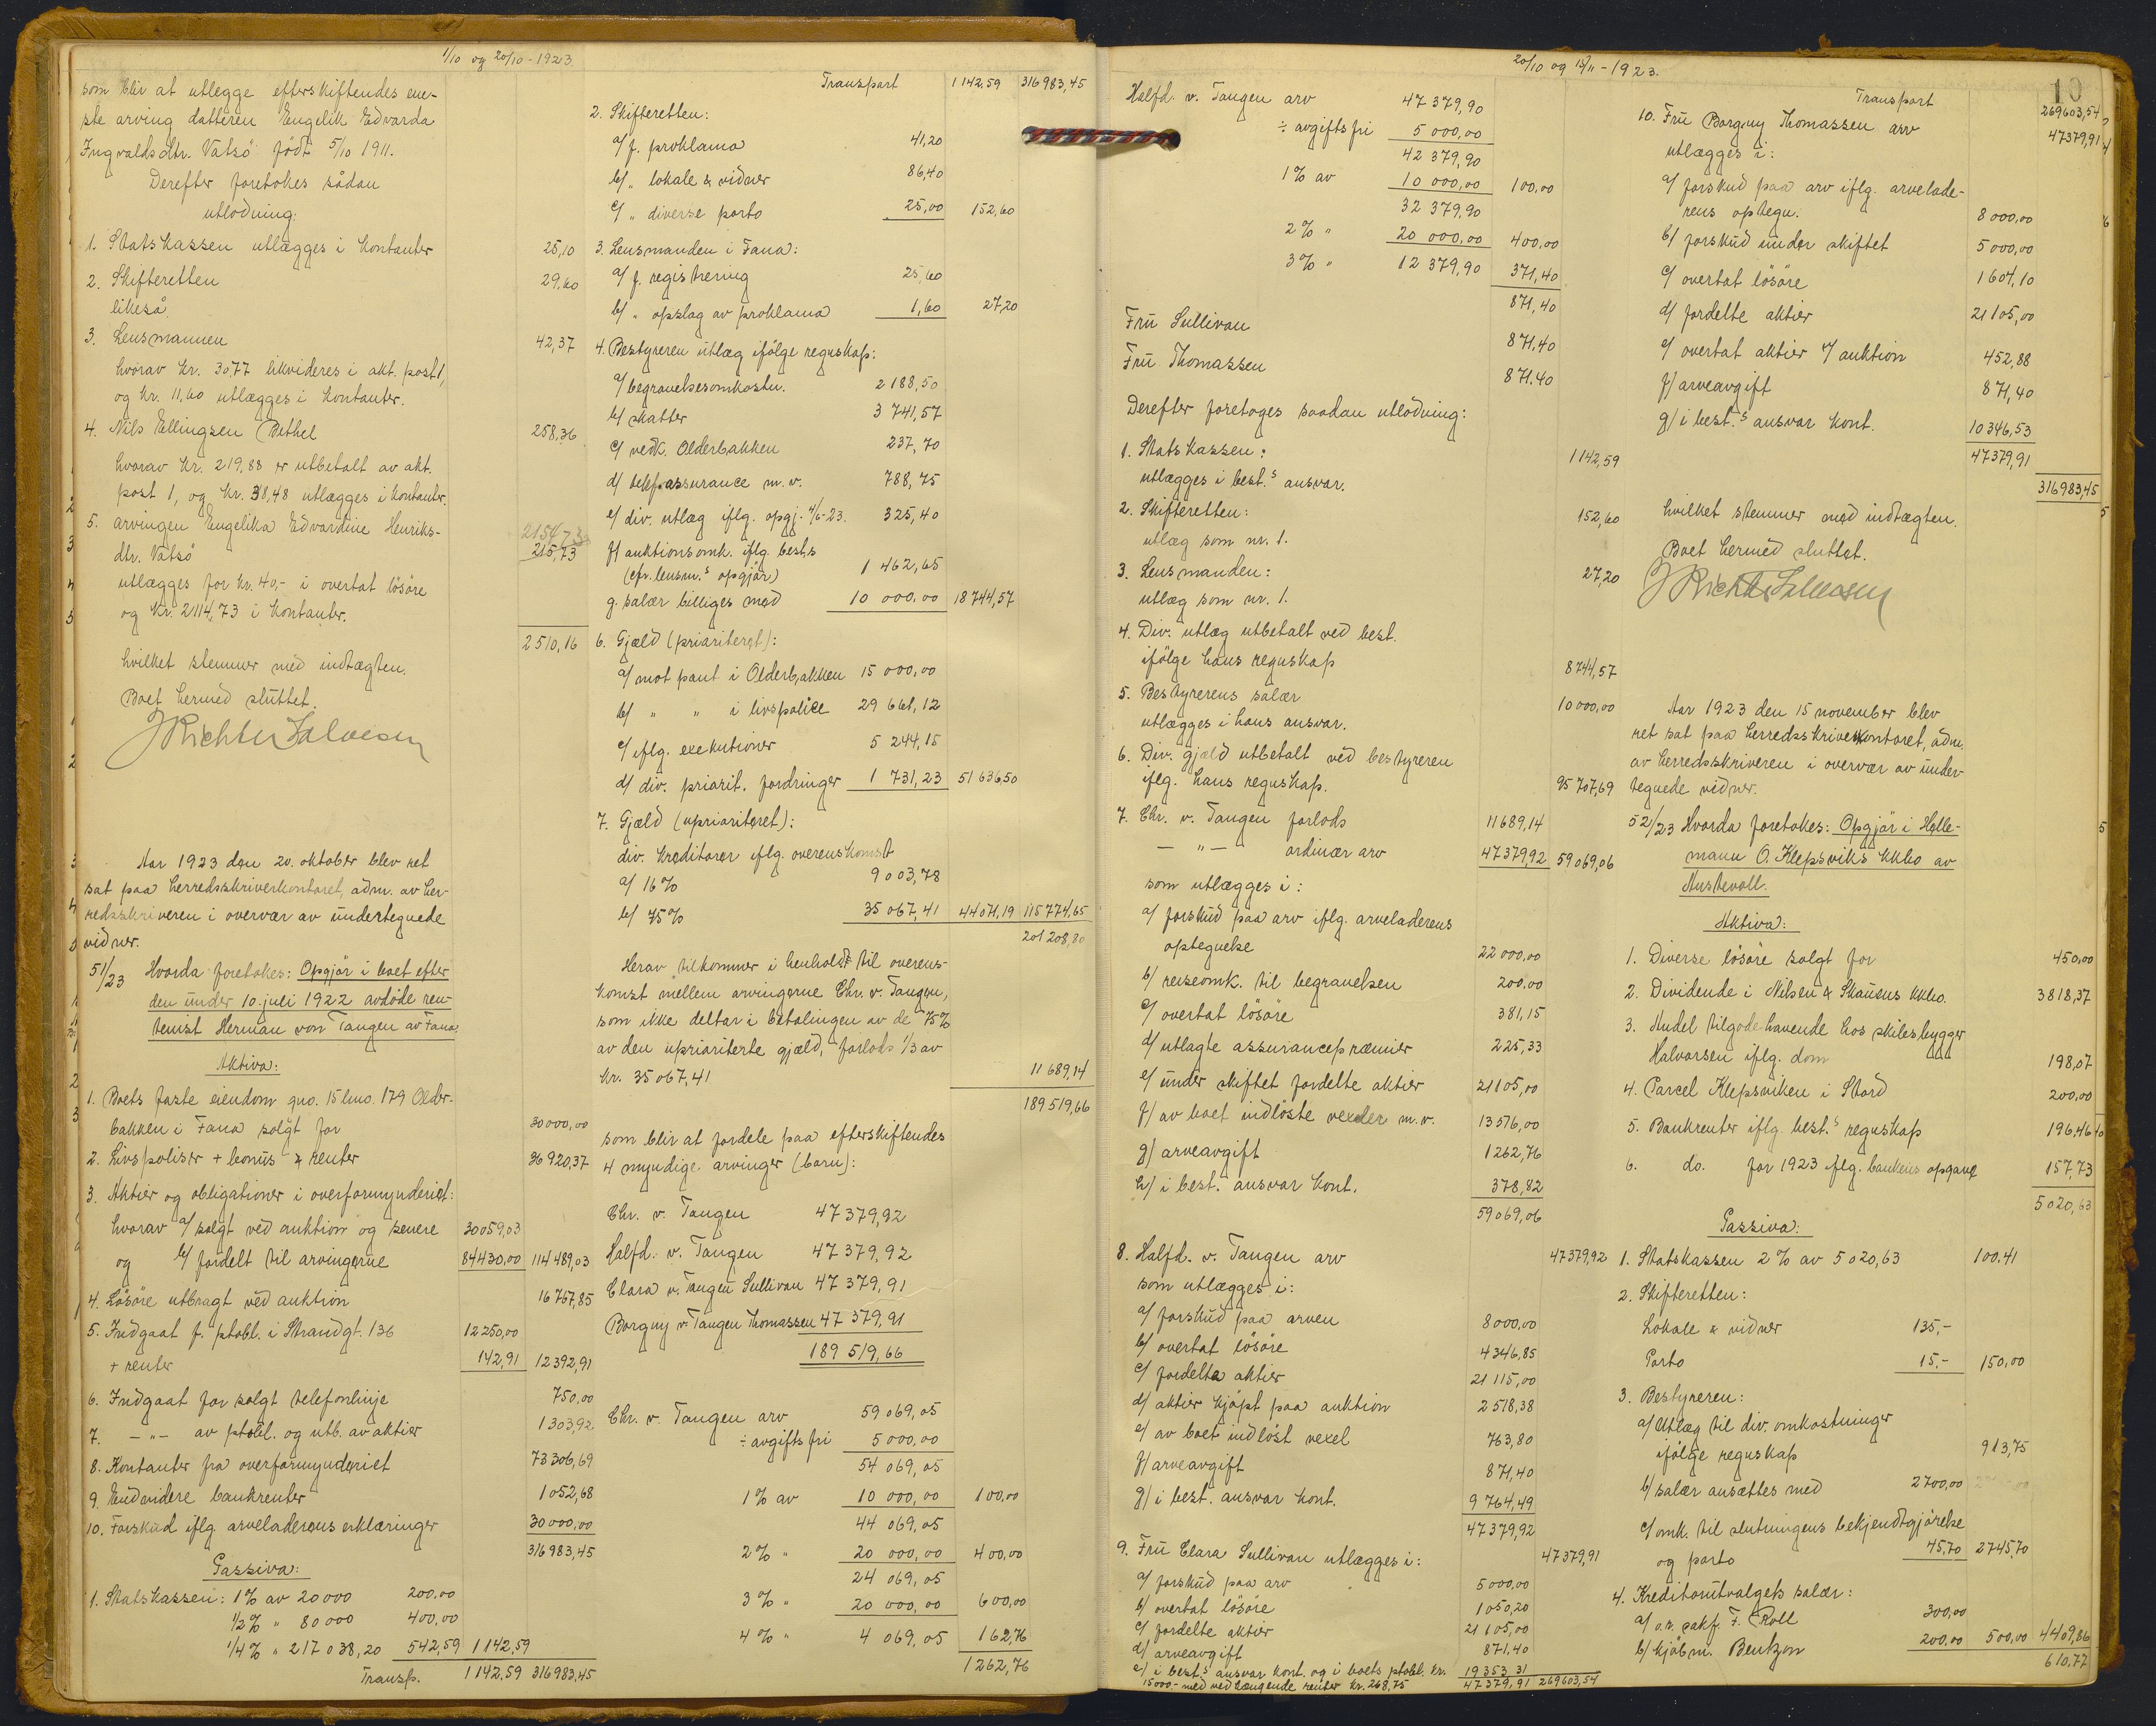 1/10 og 20/10 - 1923.
som blir at utlegge efterskiftendes ene-
ste arving datteren Engelik Edvarda
Ingvaldsdtr. Vatsö födt 5/10 1911.
Derefter foretokes sådan
utlodning:
1. Statskassen utlægges i kontanter 25,10
2. Skifteretten 29,60
likeså.
3. Lensmannen 42,37
hvorav kr. 30,77 likvideres i akt. post 1,
og kr. 11,60 utlægges i kontanter.
4. Nils Ellingsen Bethel 258,36
hvorav kr. 219,88 er utbetalt av akt.
post 1, og kr. 38,48 utlægges i kontanter.
5. arvingen Engelika Edvardine Henriks- 2154,73
dtr. Vatsö 215,73
utlægges for kr. 40,- i overtat lösöre
og kr. 2114,73 i kontanter.
2510,16
hvilket stemmer med indtægten.
Boet hermed sluttet.
J Richter Salvesen
Aar 1923 den 20. oktober blev ret
sat paa herredsskriverkontoret, adm. av her-
redsskriveren i overvær av undertegnede
vidner.
51/23 Hvorda foretokes: Opgjör i boet efter
den under 10. juli 1922 avdöde ren-
tenist Herman von Tangen av Fana.
Aktiva:
1. Boets faste eiendom gno. 15 bno. 179 Older-
bakken i Fana solgt for 30000,00
2. Livspoliser + bonus & renter 36920,37
3. Aktier og obligationer i overformynderiet:
hvorav a/ solgt ved auktion og senere 30059,03
og b/ fordelt til arvingerne 84430,00 114489,03
4. Lösöre utbragt ved auktion 16767,85
5. Indgaat f. ptobl. i Strandgt. 136 12250,00
+ renter 142,91 12392,91
6. Indgaat for solgt telefonlinje 750,00
7. - " - av ptobl. og utb. av aktier 1303,92
8. Kontanter fra overformynderiet 73306,69
9. Endvidere bankrenter 1052,68
10. Forskud iflg. arveladerens erklæringer 30000,00
316983,45
Passiva:
1. Statskassen: 1% av 20000 200,00
1/2% " 80000 400,00
1/4% " 217038,20 542,59 1142,59
Transp. 1142,59 316983,45
Transport 1142,59 316983,45
2. Skifteretten:
a/ f. proklama 41,20
b/ " lokale & vidner 86,40
c/ " diverse porto 25,00 152,60
3. Lensmanden i Fana:
a/ f. registrering 25,60
b/ " opslag av proklama 1,60 27,20
4. Bestyreren utlæg ifölge regnskap:
a/ begravelsesomkostn. 2188,50
b/ skatter 3741,57
c/ vedk. Olderbakken 237,70
d/ telef. assurance m.v. 788,75
e/ div. utlæg iflg. opgj. 4/6-23. 325,40
f/ auktionsomk. iflg. best.s
(efr. lensm.s opgjör) 1462,65
g. salær billiges med 10000,00 18744,57
6. Gjæld (prioritert):
a/ mot pant i Olderbakken 15000,00
b/ " " i livspolice 29661,12
c/ iflg. exekutioner 5244,15
d/ div. priorit. fordringer 1731,23 51636,50
7. Gjæld (uprioritert):
div. kreditorer iflg. overenskomst
a/ 16% 9003,78
b/ 75% 35067,41 44071,19 115774,65
201208,80
Herav tilkommer i henhold til overens-
komst mellem arvingerne Chr. v. Tangen,
som ikke deltar i betalingen av de 75%
av den uprioriterte gjæld, forlods 1/3 av
kr. 35067,41 11689,14
189519,66
som blir at fordele paa efterskiftendes
4 myndige arvinger (barn):
Chr. v. Tangen 47379,92
Halfd. v. Tangen 47379,92
Clara v. Tangen Sullivan 47379,91
Borgny v. Tangen Thomassen 47379,91
189519,66
Chr. v. Tangen arv 59069,05
÷ avgiftsfri 5000,00
54069,05
1% av 10000,00 100,00
44069,05
2% " 20000,00 400,00
24069,05
3% " 20000,00 600,00
4% " 4069,05 162,76
1262,76
20/10 og 15/11 - 1923.
10
Halfd. v. Tangen arv 47379,90
÷ avgiftsfri 5000,00
42379,90
1% av 10000,00 100,00
32379,90
2% " 20000,00 400,00
3% " 12379,90 371,40
871,40
Fru Sullivan 871,40
Fru Thomassen 871.40
Derefter foretoges saadan utlodning:
1. Statskassen: 1142,59
utlægges i best.s ansvar.
2. Skifteretten: 152,60
utlæg som nr. 1.
3. Lensmanden: 27,20
utlæg som nr. 1.
4. Div. utlæg utbetalt ved best.
ifölge hans regnskap 8744,57
5. Bestyrerens salær 10000,00
utlægges i hans ansvar.
6. Div. gjæld utbetalt ved bestyreren
iflg. hans regnskap. 95707,69
7. Chr. v. Tangen forlods 11689,14
- " - ordinær arv 47379,92 59069,06
som utlægges i:
a/ forskud paa arv iflg. arveladerens
optegnelse 22000,00
b/ reiseomk. til begravelsen 200,00
c/ overtat lösöre 381,15
d/ utlagte assurancepræmier 225,33
e/ under skiftet fordelte aktier 21105,00
f/ av boet indlöste vexler m.v. 13576,00
g/ arveavgift 1262,76
h/ i best. ansvar kont. 378,82
59069,06
8. Halfd. v. Tangen arv 47379,92
som utlægges i:
a/ forskud paa arven 8000,00
b/ overtat lösöre 4346,85
c/ fordelte aktier 21115,00
d/ aktier kjöpt paa auktion 2518,38
e/ av boet indlöst vexel 763,80
f/ arveavgift 871,40
g/ i best. ansvar kont. 9764,49
47379,92
9. Fru Clara Sullivan utlægges i: 47379,91
a/ forskud paa arv 5000,00
b/ overtat lösöre 1050,20
c/ fordelte aktier 21105,00
d/ arveavgift 871,40
e/ i best.s ansvar kont. og i boets ptobl. kr. 19353,31
15000,- med vedhængende renter kr. 268,75 47379,91 269603,54
Transport 269603,54
10. Fru Borgny Thomassen arv 47379,91
utlægges i:
a/ forskud paa arv iflg. arvelade-
rens optegn. 8000,00
b/ forskud under skiftet 5000,00
c/ overtat lösöre 1604,10
d/ fordelte aktier 21105,00
e/ overtat aktier v/ auktion 452,88
f/ arveavgift 871,40
g/ i best.s ansvar kont. 10346,53
47379,91
316983,45
hvilket stemmer med indtægten.
Boet hermed sluttet.
J Richter Salvesen
Aar 1923 den 15 november blev
ret sat paa herredsskriverkontoret, adm.
av herredsskriveren i overvær av under-
tegnede vidner.
52/23 Hvorda foretokes: Opgjör i Helle-
mann O. Klepsviks kkbo av
Austevoll.
Aktiva:
1. Diverse lösöre solgt for 450,00
2. Dividende i Nilsen & Skauens kkbo. 3818,37
3. Andel tilgodehavende hos skibsbygger
Halvorsen iflg. dom 198,07
4. Parcel Klepsviken i Stord 200,00
5. Bankrenter iflg. best.s regnskap 196,46
6. do. for 1923 iflg. bankens opgave 157,73
5020,63
Passiva:
1. Statskassen 2% av 5020,63 100.41
2. Skifteretten:
Lokale & vidner 135,-
Porto 15,- 150,00
3. Bestyreren:
a/ Utlæg til div. omkostninger
ifölge regnskap 913,75
b/ salær ansættes med 2700,00
c/ omk. til slutningens bekjendtgjörelse
og porto 45,70 2745,70
4. Kreditorutvalgets salær:
a/ o.r. sakf. F. Roll 300,00
b/ kjöbm. Bentzon 200,00 500,00 4409,86
610,77